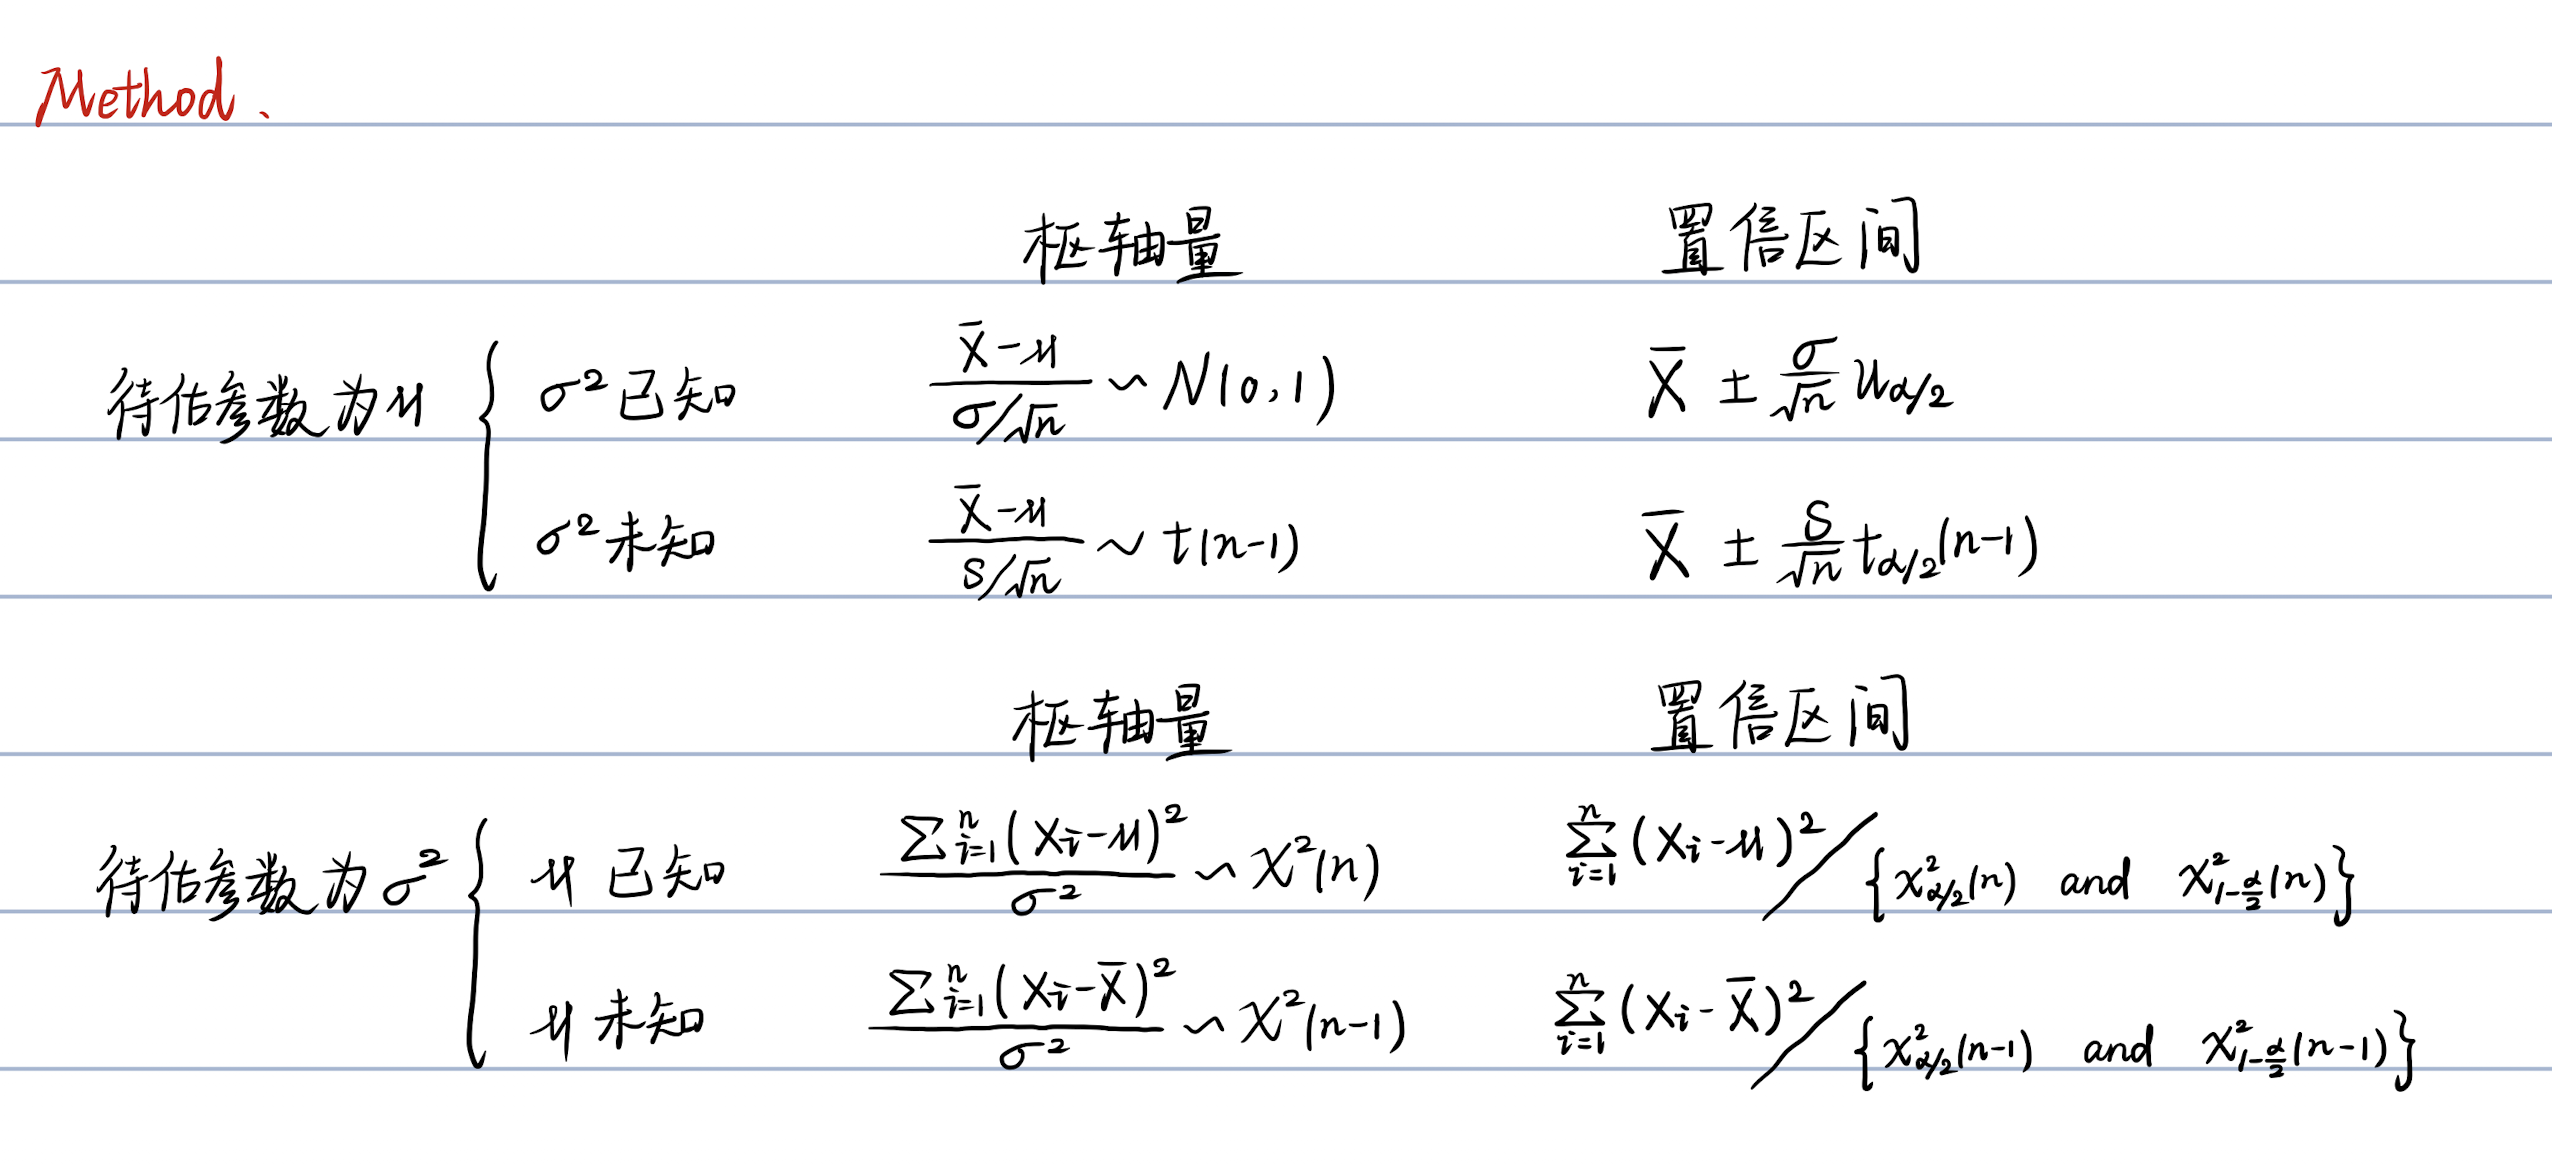 Method、
枢轴量 置信区间
待估参数为μ { σ²已知 (X̄-μ)/(σ/√n) ~ N(0,1) X̄ ± σ/√n u_{α/2}
σ²未知 (X̄-μ)/(S/√n) ~ t(n-1) X̄ ± S/√n t_{α/2}(n-1)
枢轴量 置信区间
待估参数为σ² { μ已知 ∑ⁿᵢ₌₁(Xᵢ-μ)²/σ² ~ χ²(n) ∑ⁿᵢ₌₁(Xᵢ-μ)²/{χ²_{α/2}(n) and χ²_{1-α/2}(n)}
μ未知 ∑ⁿᵢ₌₁(Xᵢ-X̄)²/σ² ~ χ²(n-1) ∑ⁿᵢ₌₁(Xᵢ-X̄)²/{χ²_{α/2}(n-1) and χ²_{1-α/2}(n-1)}